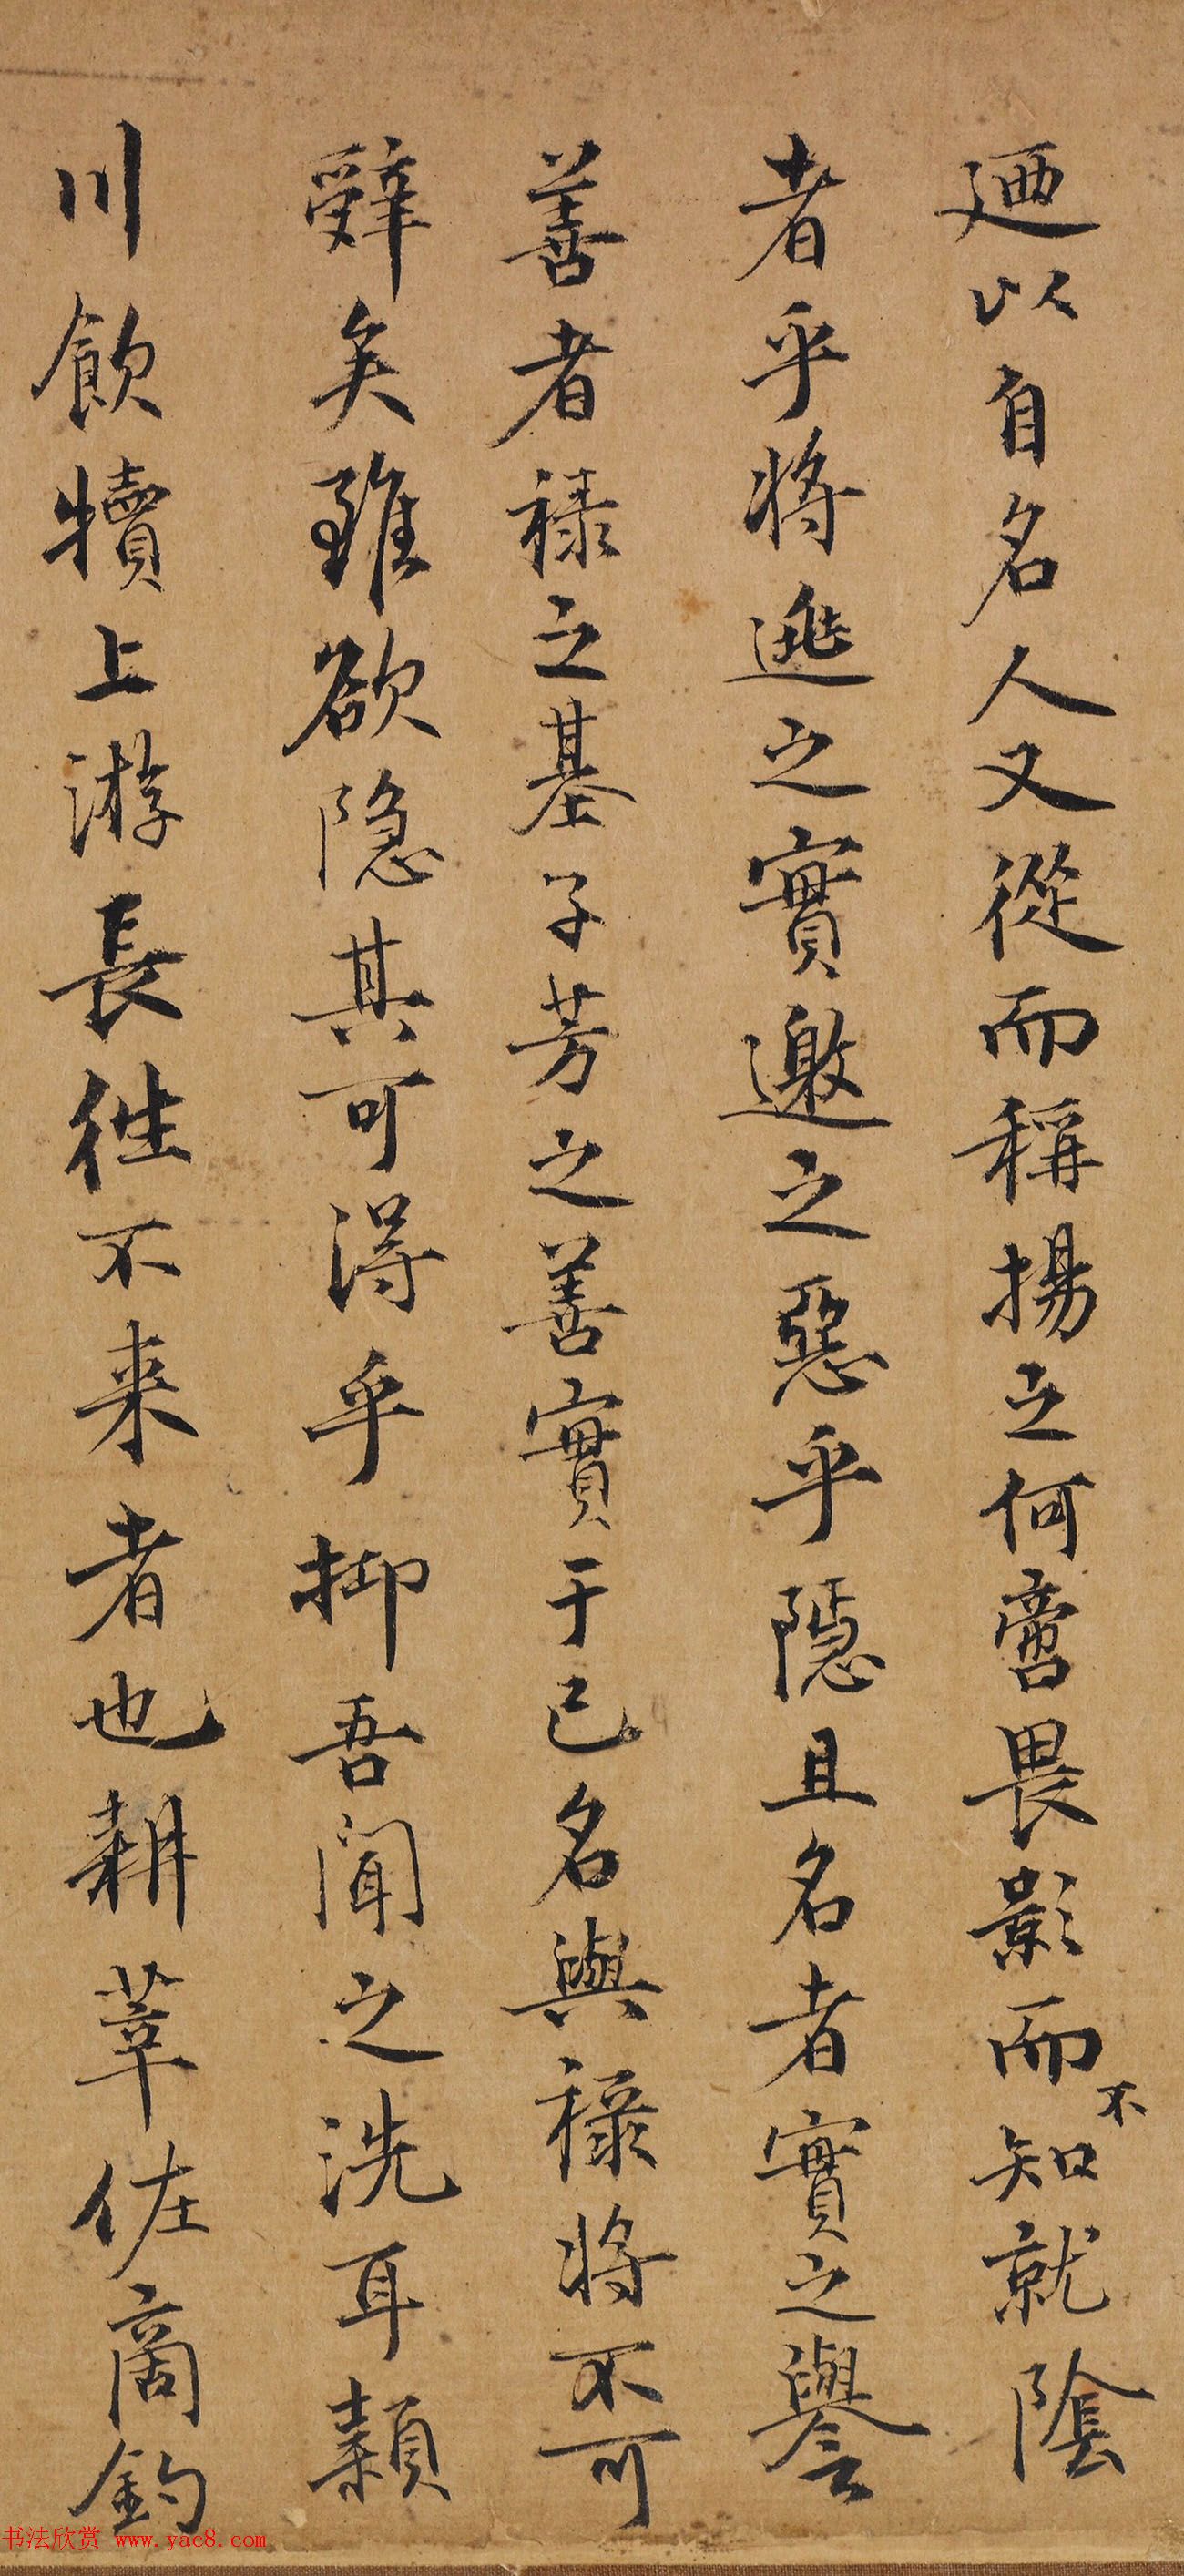 廼以自名人又從而稱揚之何啻畏影而不知就陰
者乎將逃之實邀之惡乎隱且名者實之譽
善者祿之基子芳之善實于己名與祿將不可
辭矣雖欲隐其可得乎抑吾聞之洗耳潁
川飲犢上游長往不来者也耕莘佐商釣
书法欣赏 www.yac8.com